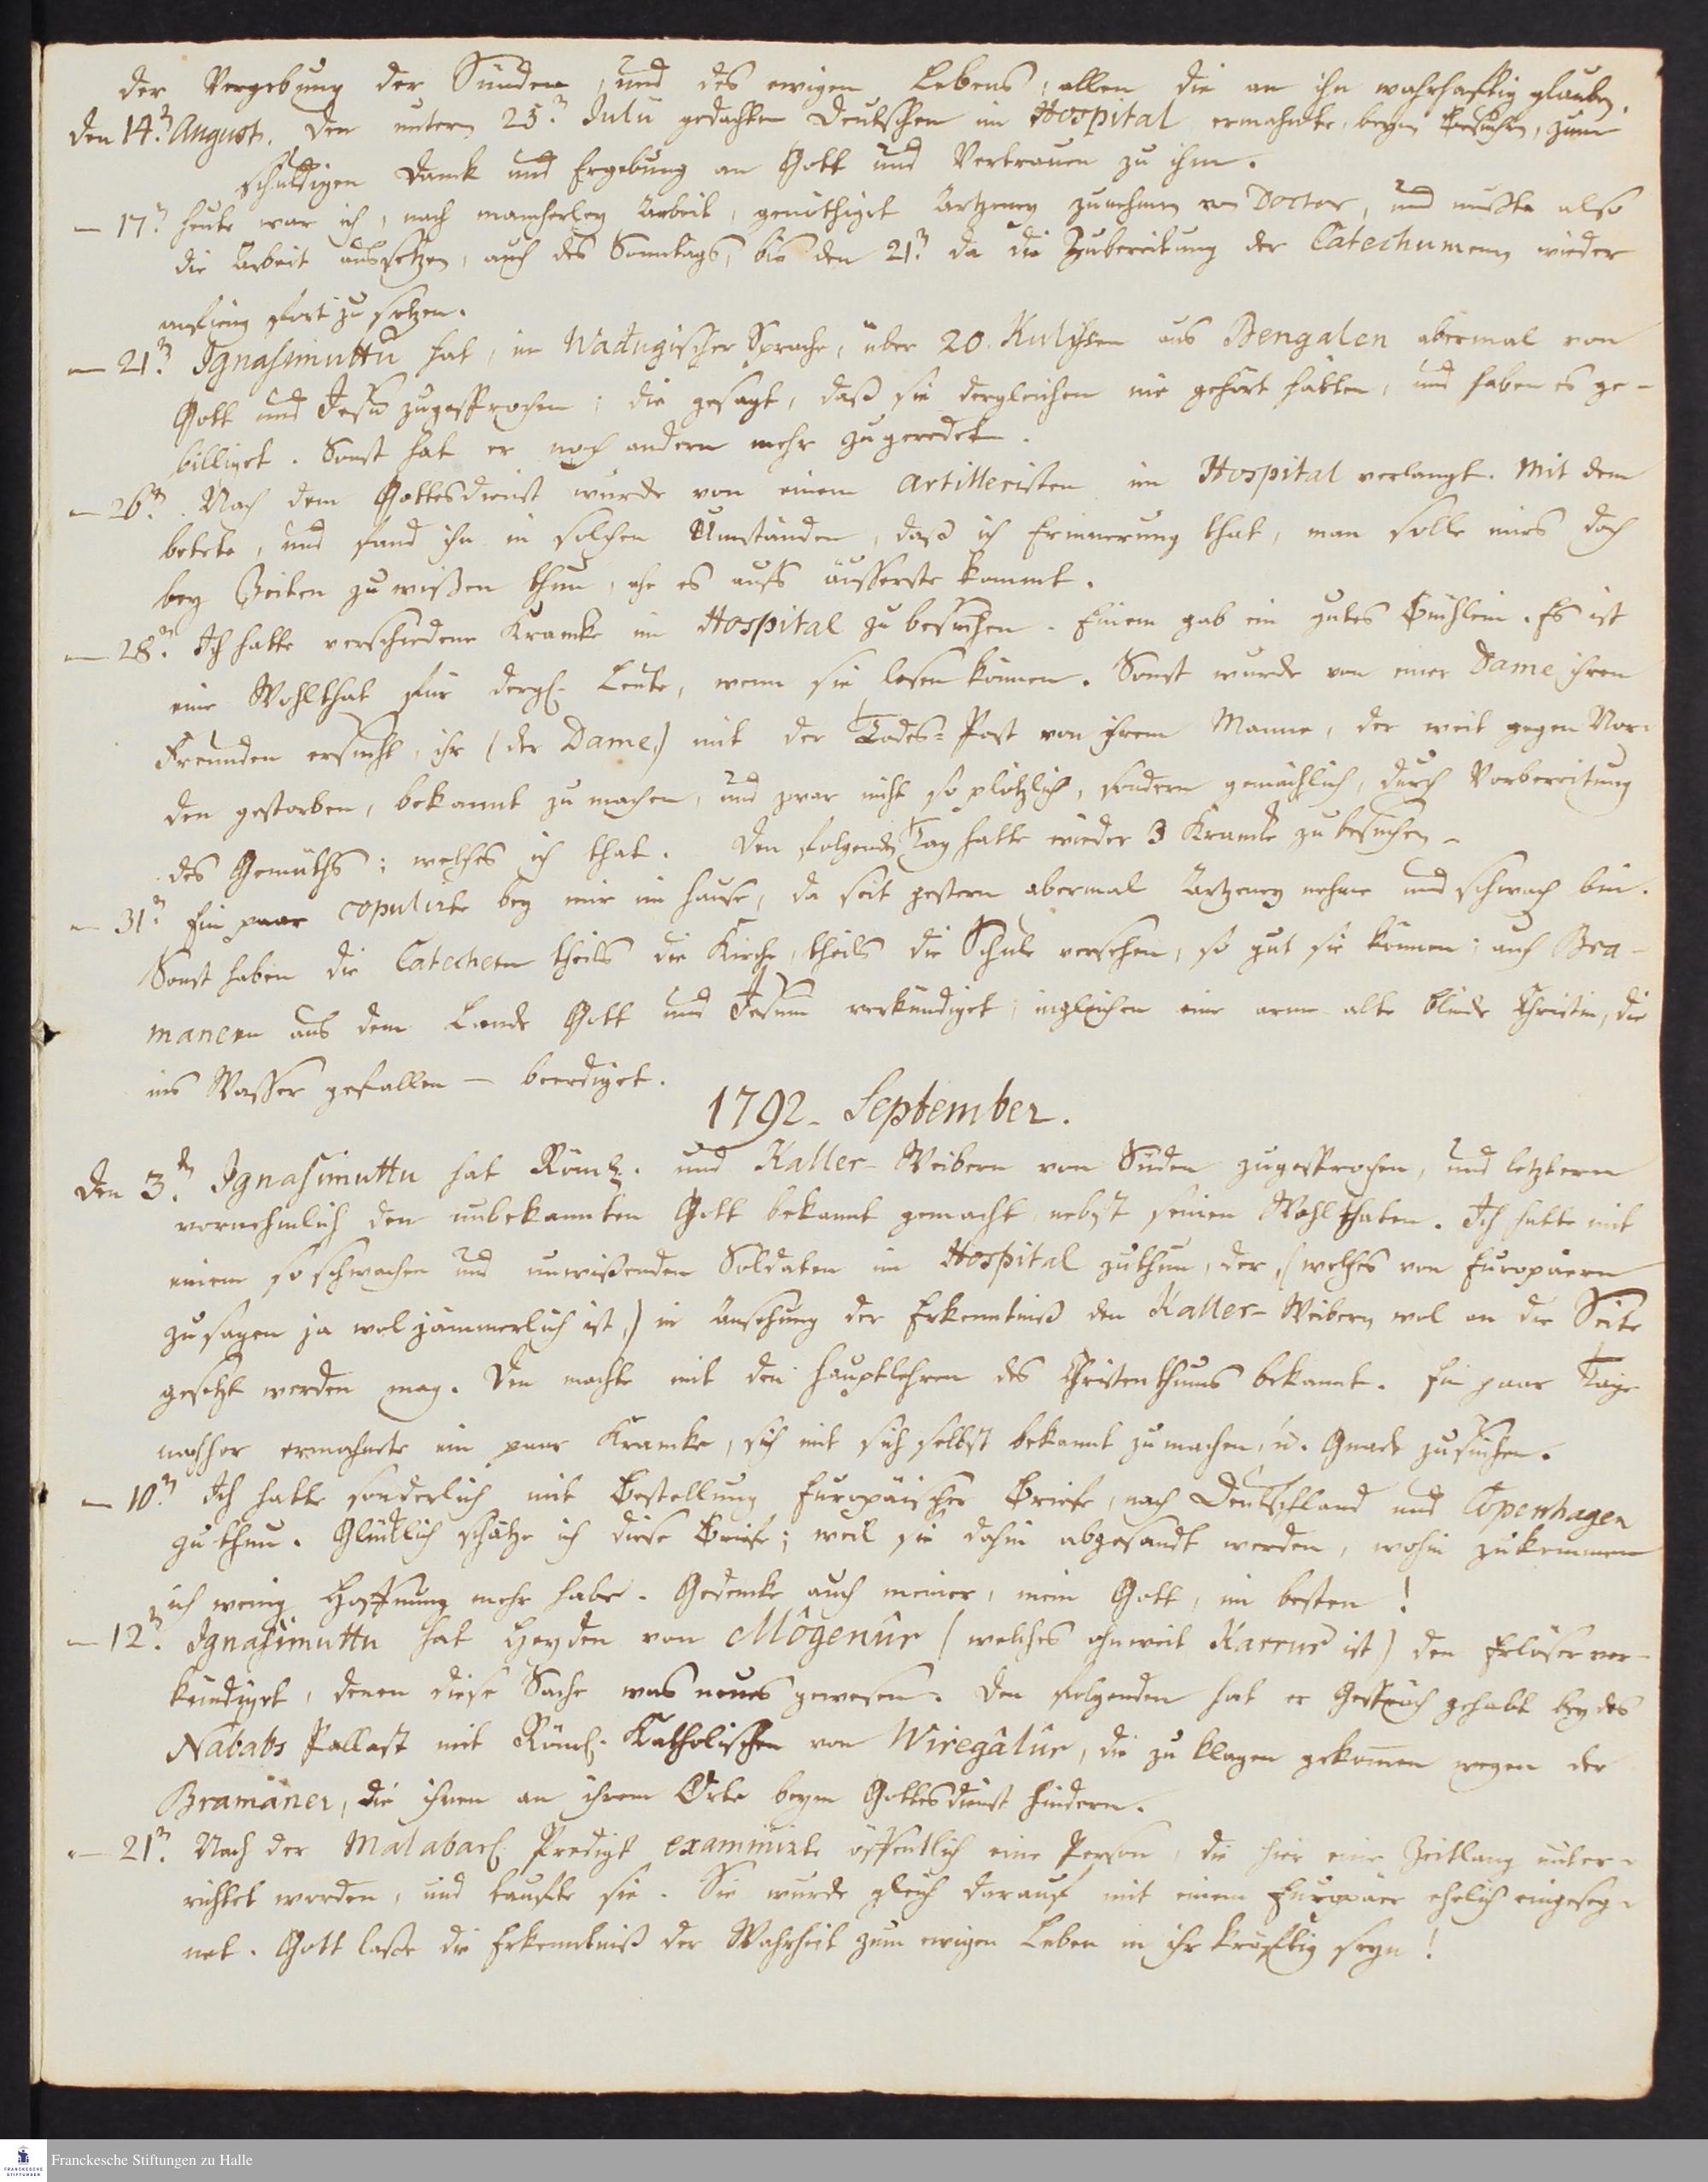 der Vergebung der Sünden, und des ewigen Lebens, allen die an ihn wahrhafftig glauben.
den 14.n August. Den unterm 25.n Julii gedachten Deutschen im Hospital ermahnte, beym Besuchen, zum
schuldigen Danck und Ergebung an Gott und Vertrauen zu ihm.
— 17.n heute war ich, nach mancherley Arbeit, genöthiget Artzeney zunehmen vom Doctor, und muste also
die Arbeit aussetzen, auch des Sonntags, bis den 21.n da die Zubereitung der Catechumenen wieder
anfieng fort zu setzen.
— 21.n Ignasimuttu hat, in Wadugischer Sprache, über 20. aus Bengalen abermal von
Gott und Jesu zugesprochen; die gesagt, daß sie dergleichen nie gehört hätten, und haben es ge-
billiget. Sonst hat er noch andern mehr zugeredet.
— 26.n. Nach dem Gottesdienst wurde von einem Artilleristen im Hospital verlangt. Mit dem
betete, und fand ihn in solchen Umständen, daß ich Erinnerung that, man solle mirs doch
bey Zeiten zu wißen thun, ehe es aufs äusserste kommt.
— 28.n Ich hatte verschiedene Krancke im Hospital zu besuchen. Einem gab ein gutes Büchlein. Es ist
eine Wohlthat für dergl. Leute, wenn sie lesen können. Sonst wurde von einer Dame ihren
Freunden ersucht, ihr (der Dame,) mit der Todes-Post von ihrem Manne, der weit gegen Nor-
den gestorben, bekannt zu machen, und zwar nicht so plötzlich, sondern gemächlich, durch Vorbereitung
des Gemüths; welches ich that. Den folgenden Tag hatte wieder 3 Krancke zu besuchen.
— 31.n Ein paar copulirte bey mir im Hause, da seit gestern abermal Artzeney nehme und schwach bin.
Sonst haben die Catecheten theils die Kirche, theils die Schule versehen, so gut sie können; auch Bra-
manern aus dem Lande Gott und Jesum verkündiget, ingleichen eine arme alte blinde Christin, die
ins Wasser gefallen — beerdiget.
1792. September.
Den 3.n Ignasimuttu hat Römi. und Kaller-Weibern von Süden zugesprochen, und letztern
vornehmlich den unbekannten Gott bekannt gemacht nebst seinen Wohlthaten. Ich hatte mit
einem so schwachen und unwißenden Soldaten im Hospital zuthun, der, (welches von Europäern
zu sagen ja wol jämmerlich ist,) in Ansehung der Erkenntniß den Kaller-Weibern wol an die Seite
gesetzt werden mag. Den machte mit den Hauptlehren des Christenthums bekannt. Ein paar Tage
nachher ermahnete ein paar Krancke, sich mit sich selbst bekannt zu machen, u. Gnade zu suchen.
— 10.n Ich hatte sonderlich mit Bestellung Europäischer Briefe, nach Deutschland und Copenhagen
zu thun. Glücklich schätze ich diese Briefe; weil sie dahin abgesandt werden, wohin zukommen
ich wenig Hoffnung mehr habe. Gedencke auch meiner, mein Gott, im besten!
— 12.n. Ignasimuttu hat Heyden von Môgenûr (welches ohnweit Karrur ist) den Erlöser ver-
kündiget, denen diese Sache was neues gewesen. Den folgenden hat er Gespräch gehabt bey des
Nababs Pallast mit Römsch. Katholischen von Wiregâlûr, die zu klagen gekommen wegen der
Bramäner, die ihnen an ihrem Orte beym Gottesdienst hindern.
— 21.n Nach der Malabarsch. Predigt examinirte öffentlich eine Person, die hier eine Zeitlang unter-
richtet worden, und taufte sie. Sie wurde gleich darauf mit einem Europäer ehelich eingeseg-
net. Gott laße die Erkenntniß der Wahrheit zum ewigen Leben in ihr kräftig seyn!
FRANCKESCHE
STIFTUNGEN
Franckesche Stiftungen zu Halle